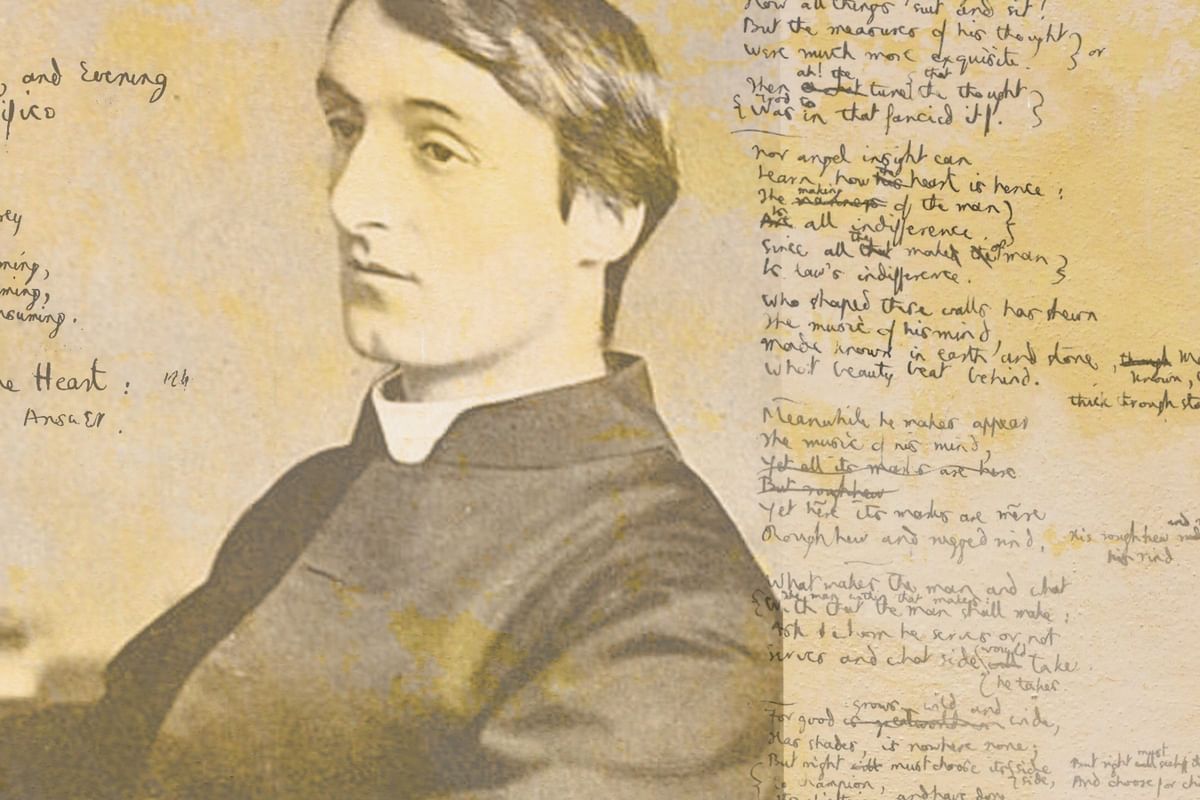 , and Evening
ming,
ming,
nsuming.
e Heart :
Answer.
Now all things suit and sit!
But the measures of his thought } or
were much more exquisite.
ah! the that
Then tuned the thought }
{ Was in that fancied it.
Nor angel insight can
Learn how his the heart is hence :
making
The manners of the man }
Are to all indifference. }
Since all that the makes the of man }
Is Law's indifference. }
Who shaped these walls has shewn
The music of his mind,
Made known in earth and stone, though
known,
thick through
What beauty beat behind.
Meanwhile he makes appear
The music of his mind,
Yet all its marks are here
But roughhew
Yet here its marks are mere
Rough hew and rugged rind, His roughhew
and
his rind
What makes the man and what
{ the man within that makes:
With that the man shall make ;
Ask whom he serves or not
Serves and what side would take
{ he takes.
grows wild and
For good is wide,
Has shades, is nowhere none;
But right must choose its side But right must
{ side, And choose for
champion,
and have done